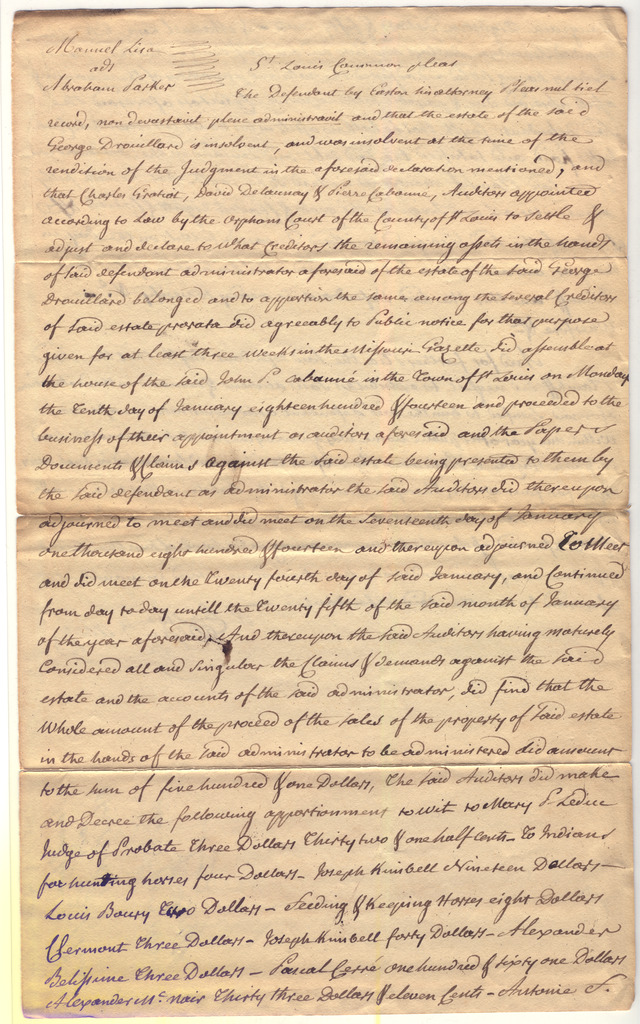 Manuel Lisa
ads
Abraham Parker
St Louis Common pleas
The Defendant by Easton his attorney Pleas nul tiel
record, non devastavit plene administravit and that the estate of the said
George Drouillard is insolvent, and was insolvent at the time of the
rendition of the Judgment in the aforesaid declaration mentioned, and
that Charles Gratiot, David Delaunay & Pierre Cabanne, Auditors appointed
according to Law by the Orphans Court of the County of St Louis to settle &
adjust and declare to what Creditors the remaining assets in the hands
of said defendant administrator aforesaid of the estate of the said George
Drouillard belonged and to apportion the same among the several Creditors
of said estate prorata did agreeably to Public notice for that purpose
given for at least three weeks in the Missouri Gazette did assemble at
the house of the said John P. Cabanné in the Town of St Louis on Monday
the Tenth day of January eighteen hundred & fourteen and proceeded to the
business of their appointment as auditors aforesaid and the Papers
Documents & Claims against the said estate being presented to them by
the said defendant as administrator the said Auditors did thereupon
adjourned to meet and did meet on the Seventeenth day of January
one thousand eight hundred & fourteen and thereupon adjourned to Meet
and did meet on the Twenty fourth day of said January, and Continued
from day to day untill the Twenty fifth of the said month of January
of the year aforesaid, And thereupon the said Auditors having maturely
Considered all and Singular the Claims & demands against the said
estate and the accounts of the said administrator, did find that the
Whole amount of the proceed of the sales of the property of said estate
in the hands of the said administrator to be administered did amount
to the sum of five hundred & one Dollars, The said Auditors did make
and Decree the following apportionment to wit to Mary P. Leduc
Judge of Probate Three Dollars Thirty two & one half Cents - To Indians
for hunting horses four Dollars - Joseph Kimbell Nineteen Dollars -
Louis Boury Two Dollars - Feeding & Keeping Horses eight Dollars
Clermont Three Dollars - Joseph Kimbell forty Dollars - Alexander
Belissime Three Dollars - Pascal Cerré one hundred & sixty one Dollars
Alexander Mc nair Thirty three Dollars & eleven Cents - Antoine S.